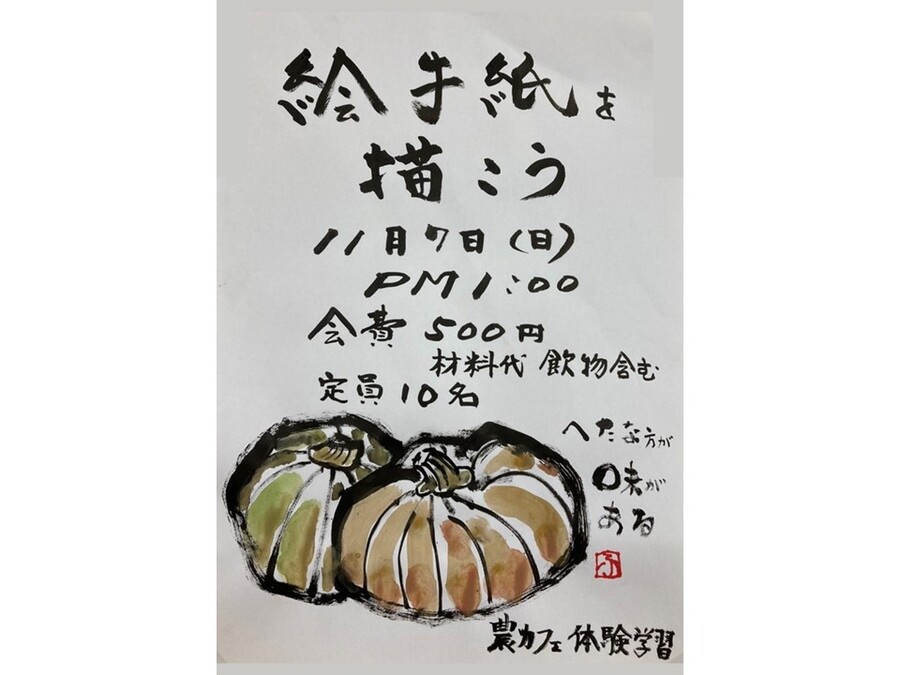 絵手紙を
描こう
11月7日(日)
PM1:00
会費 500円
材料代 飲物含む
定員10名
へたな方が
味が
ある
農カフェ体験学習